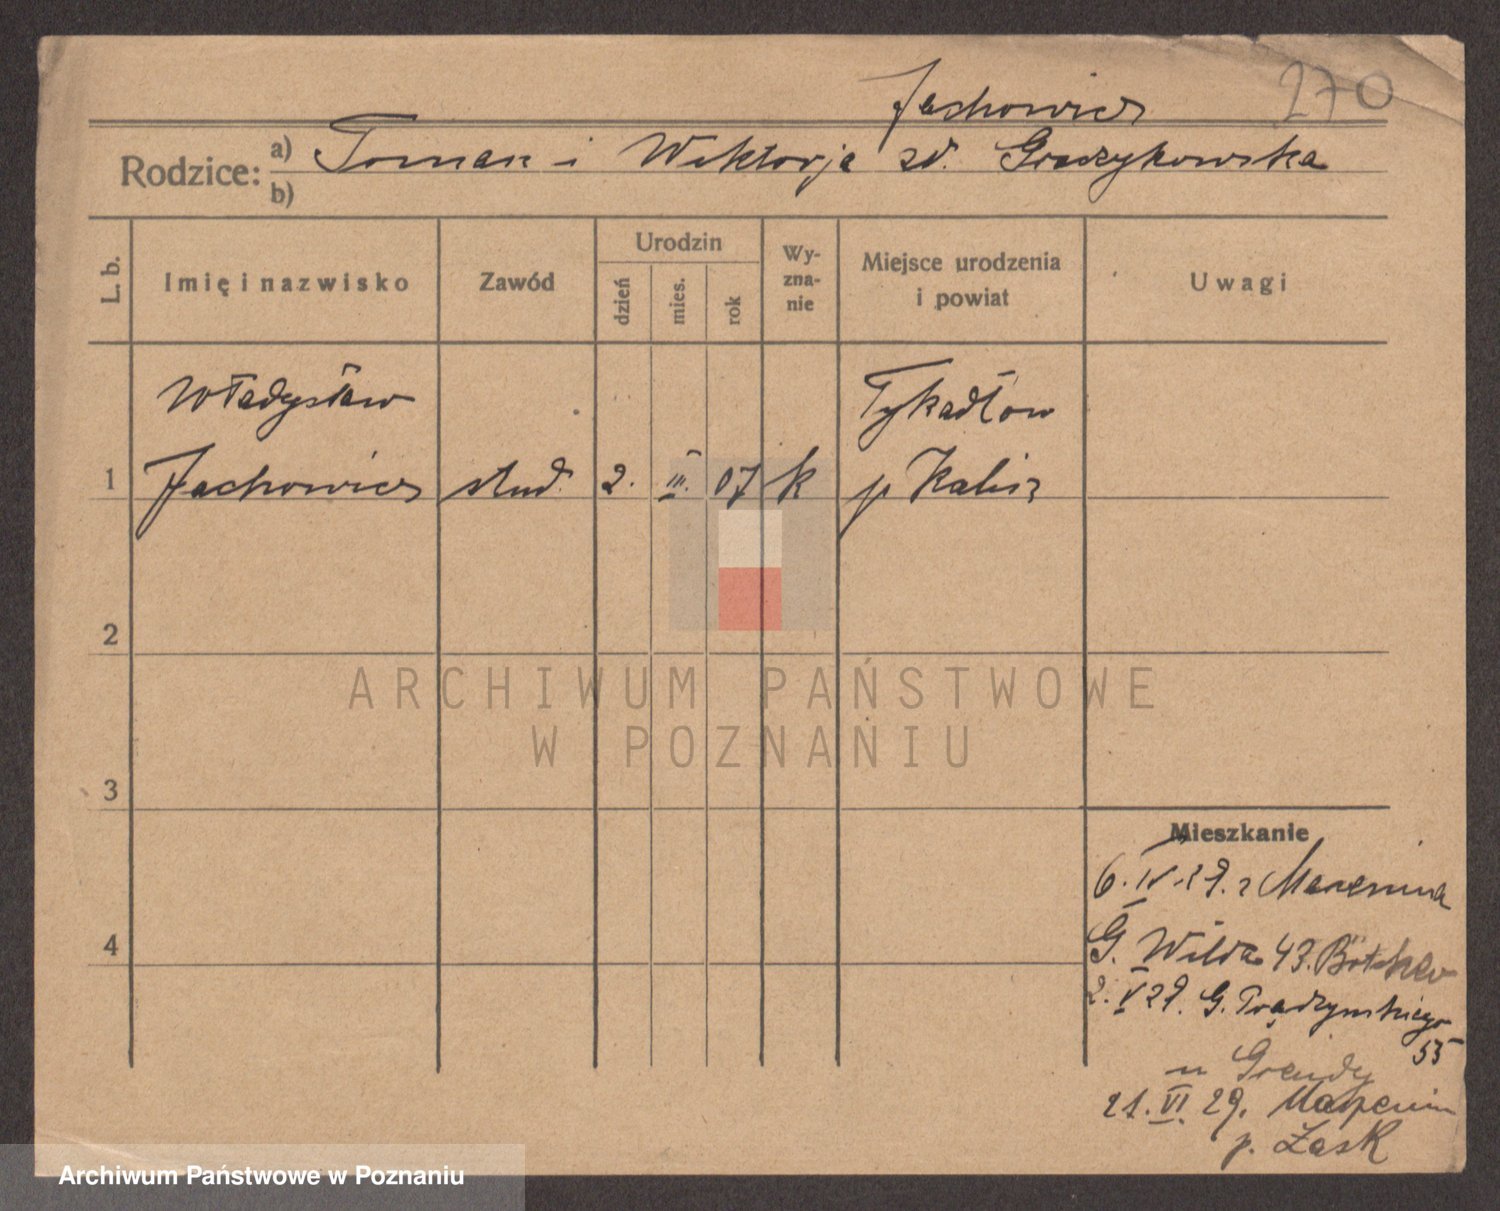 270
Jachowicz
Rodzice: a) Tomasz i Wiktorja zd. Graczykowska
b)
L. b. Imię i nazwisko Zawód Urodzin dzień mies. rok Wy-zna-nie Miejsce urodzenia i powiat Uwagi
Władysław Tykadłów
1 Jachowicz stud. 2. III. 07 k p Kalisz
2
ARCHIWUM PAŃSTWOWE
W POZNANIU
3
Mieszkanie
6. IV. 29. z Marzenina
4
G. Wilda 43.
2. V 29. G. Prądzyńskiego
55
u Grendy
21. VI. 29. Marzenin
p. Łask
Archiwum Państwowe w Poznaniu